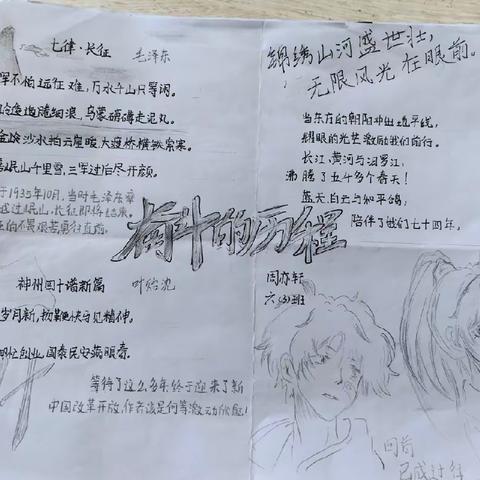 七律·长征 毛泽东
军不怕远征难,万水千山只等闲。
逶迤腾细浪,乌蒙磅礴走泥丸。
金沙水拍云崖暖,大渡桥横铁索寒。
喜岷山千里雪,三军过后尽开颜。
于1935年10月,当时毛泽东率
越过岷山,长征即将结束。
不畏艰苦勇往直前。
奋斗的历程
神州四十谱新篇 叶始沈
岁月新,扬鞭快马见精神。
创业,国泰民安焕眼春。
等待了这么多年终于迎来了新
中国改革开放,作者该是何等激动欣慰!
锦绣山河盛世壮,
无限风光在眼前。
当东方的朝阳冲出地平线,
耀眼的光芒激励我们前行。
长江、黄河与汨罗江,
沸腾了五千多个春天!
蓝天、白云与和平鸽,
陪伴了我们七十四年。
周亦轩
六(3)班
回首
已成过往